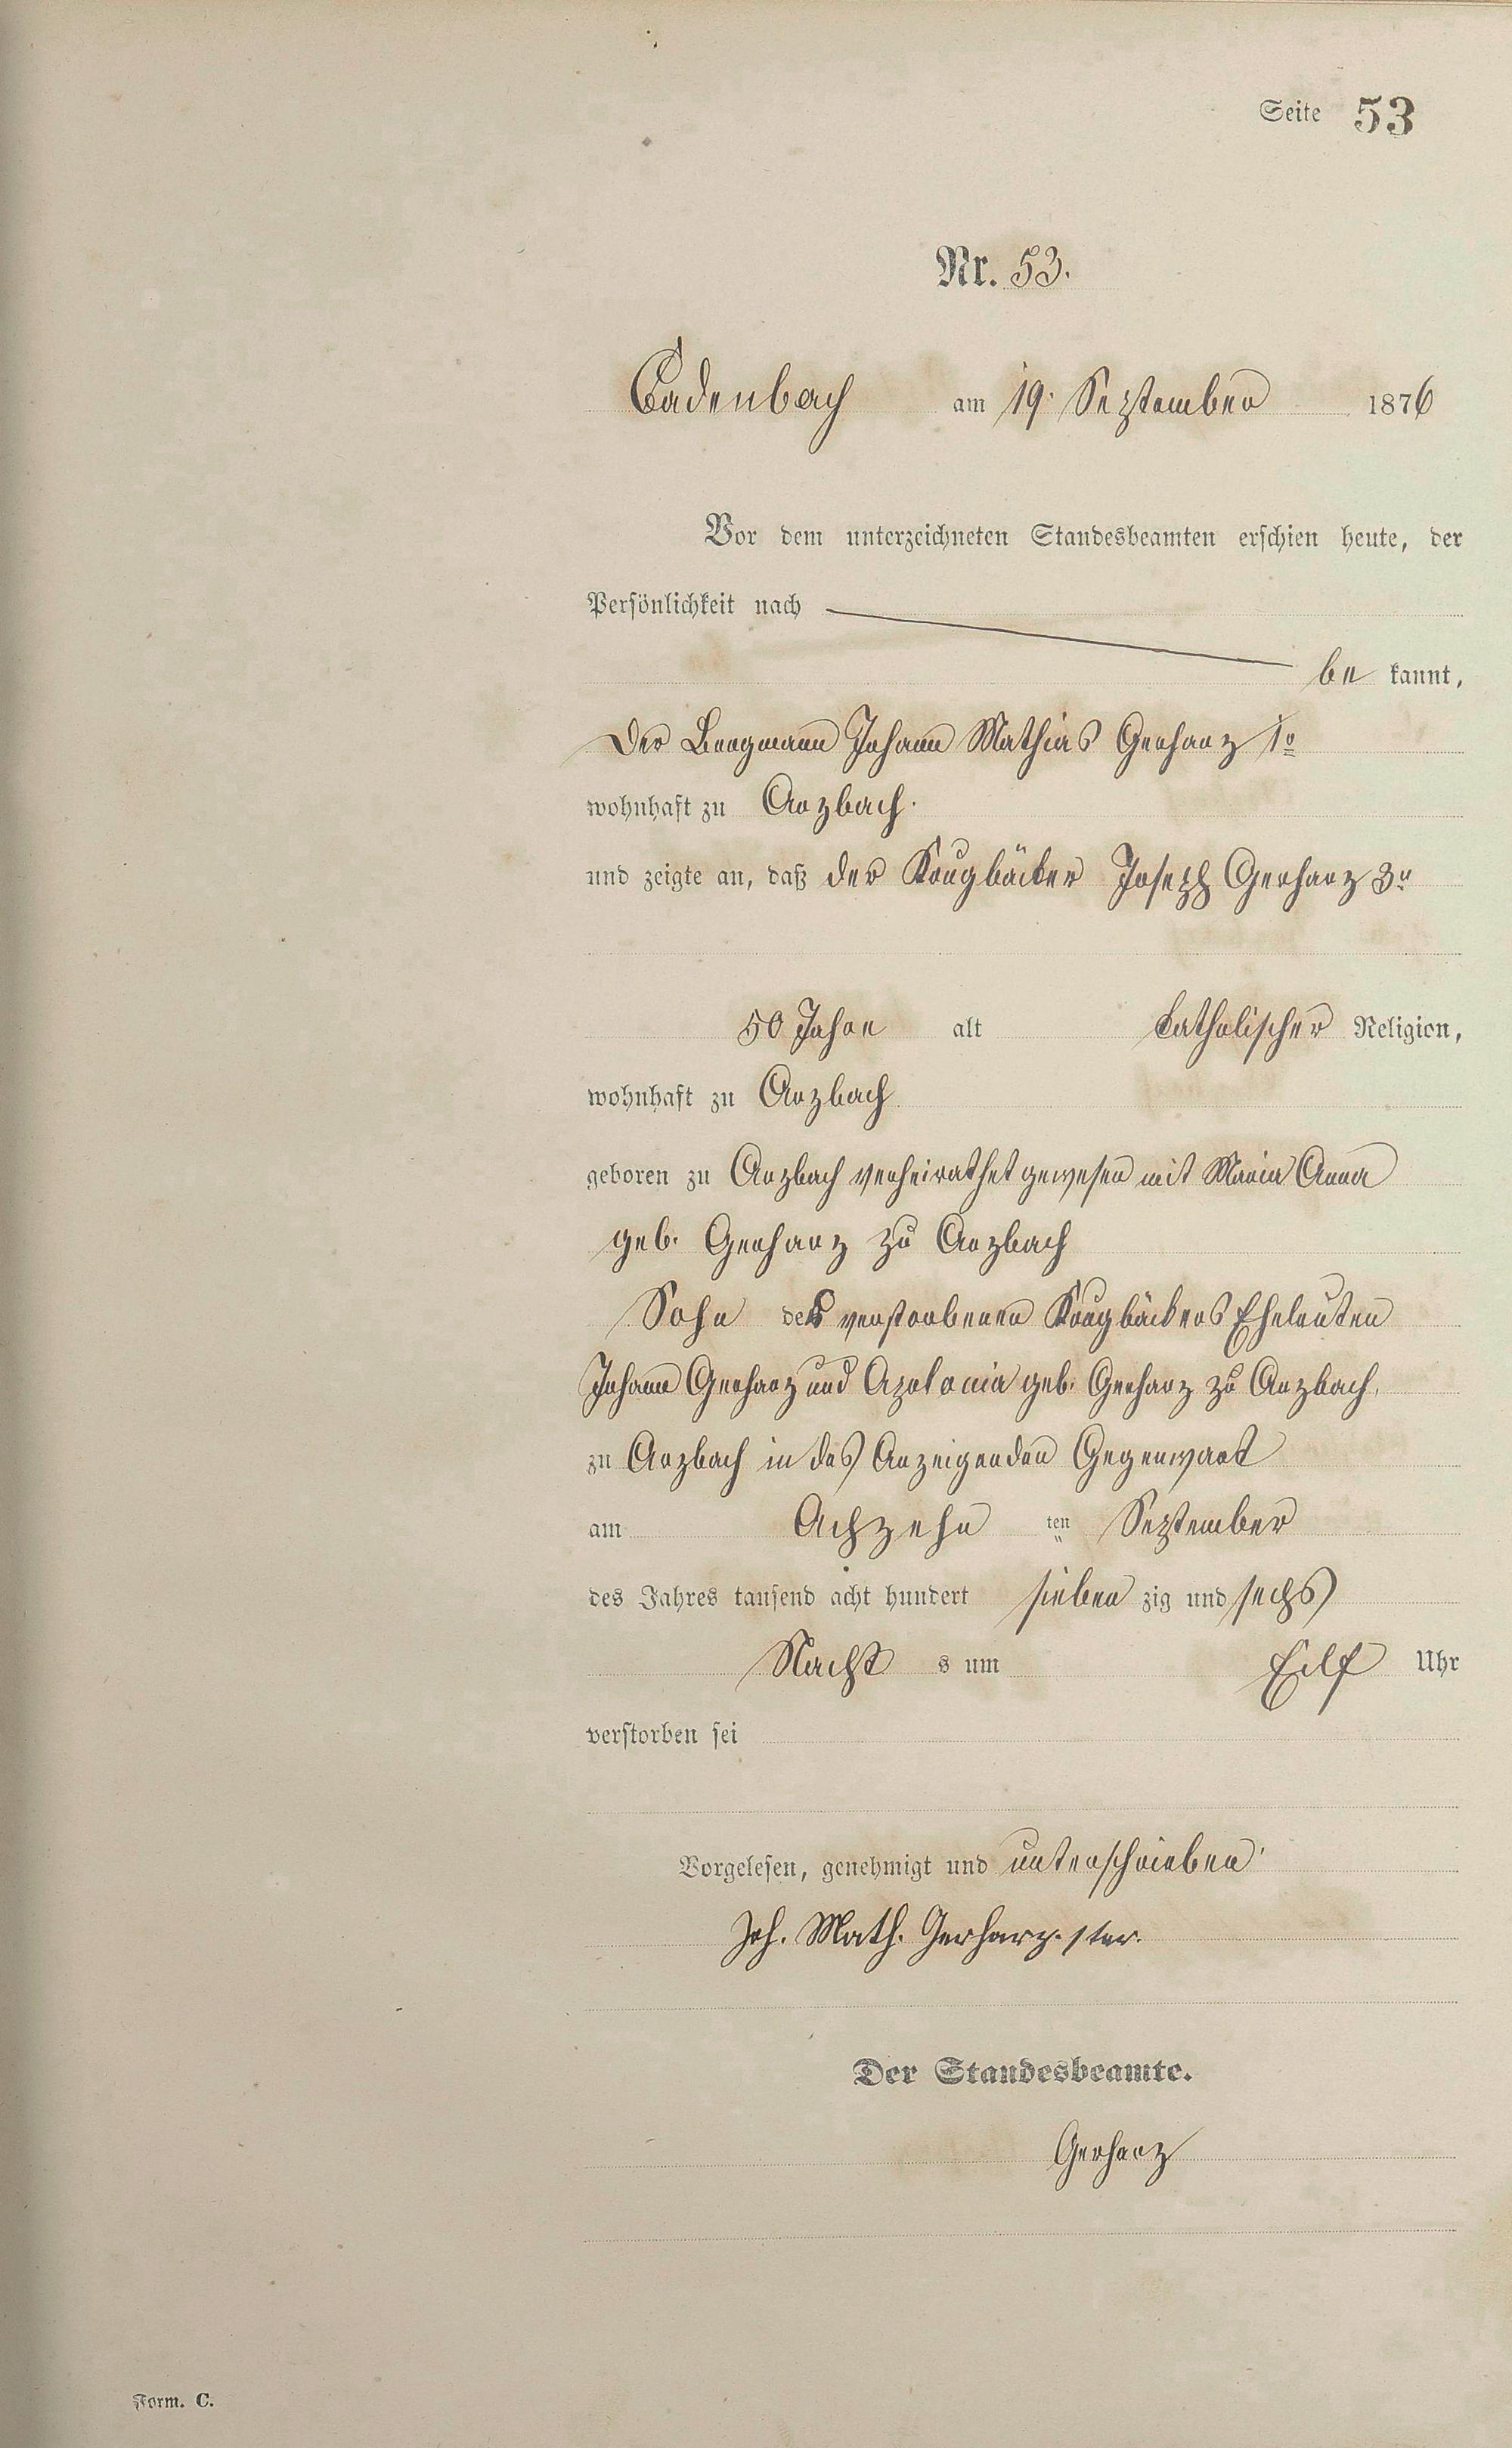 Seite 53
Nr. 53.
Cadenbach am 19. September 1876
Vor dem unterzeichneten Standesbeamten erschien heute, der
Persönlichkeit nach
be kannt,
der Bergmann Johann Mathias Gerharz 1r
wohnhaft zu Arzbach.
und zeigte an, daß der Krugbäcker Joseph Gerharz 3r
50 Jahre alt katholischer Religion,
wohnhaft zu Arzbach
geboren zu Arzbach verheirathet gewesen mit Maria Anna
geb. Gerharz zu Arzbach
Sohn der verstorbenen Krugbäckers Eheleuten
Johann Gerharz und Apolonia geb. Gerharz zu Arzbach,
zu Arzbach in des Anzeigenden Gegenwart
am Achzehn ten September
des Jahres tausend acht hundert sieben zig und sechs
Nacht s um Eilf Uhr
verstorben sei
Vorgelesen, genehmigt und unterschrieben
Joh. Math. Gerharz. 1ter.
Der Standesbeamte.
Gerharz
Form. C.